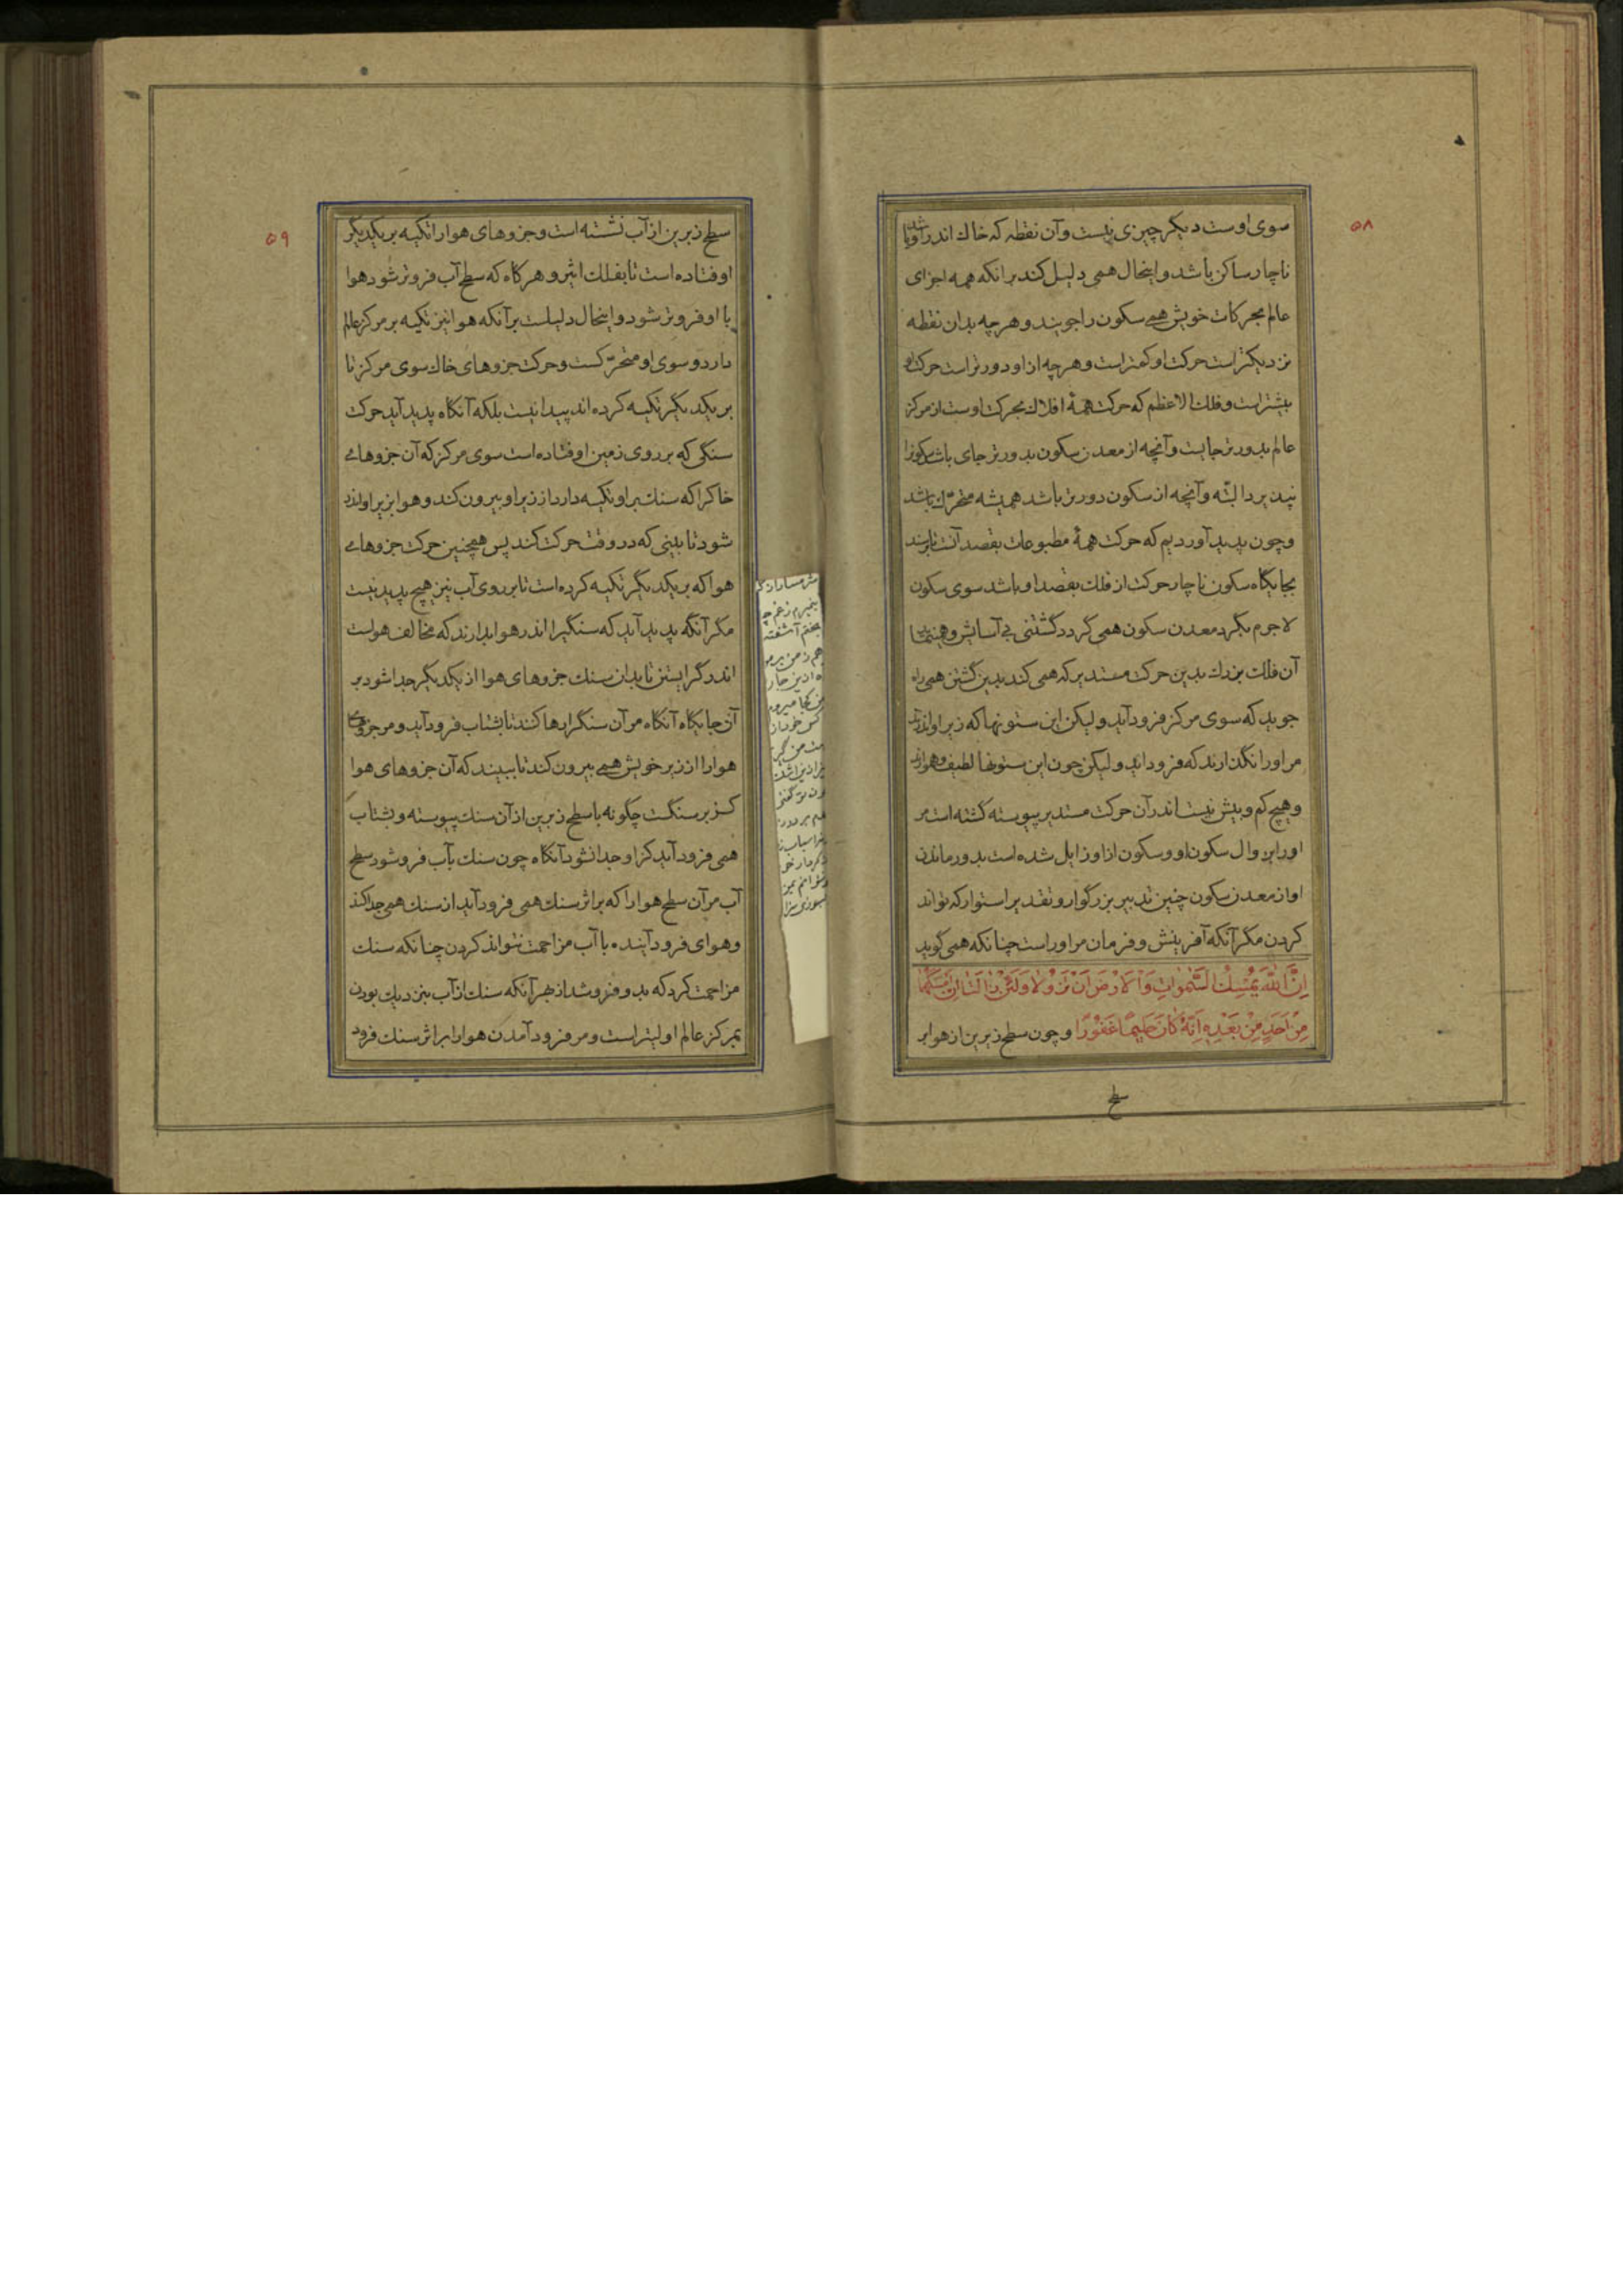 ۵۸
سوی اوست دیکر چیزی نیست وآن نقطه که خاك اندر اوبا شد
ناچار ساکن باشد واینحال همی دلیل کند برانکه همه اجزای
عالم بحرکات خویش همی سکون را جویند و هرچه بدان نقطه
نزدیکتر است حرکت او کمتر است و هرچه از او دورتر است حرکت او
بیشتر است و فلك الاعظم که حرکت همهٔ افلاك بحرکت اوست از مرکز
عالم بدورتر جایست وآنچه از معدن سکون بدورتر جای باشد سکونرا
نپذیرد البتّه وآنچه از سکون دورتر باشد همیشه متحرّك باشد
وچون پدید آوردیم که حرکت همهٔ مطبوعات بقصد آنست تا برسند
بجایگاه سکون ناچار حرکت از فلك بقصد او باشد سوی سکون
لاجرم بگرد معدن سکون همی گردد گشتنی بی آسایش و
آن فلك بزرك بدین حرکت مستدیر که همی کند بدین گشتن همی راه
جوید که سوی مرکز فرود آید ولیکن این ستونها که زیر او اندر
مر اورا نگذارند که فرود اید ولیکن چون این ستونها لطیف و هموارند
و هیچ کم و بیش نیست اندر آن حرکت مستدیر پیوسته کشته است مر
اورا بزوال سکون او و سکون ازاو زایل شده است بدور ماندن
او از معدن سکون چنین تدبیر بزرگوار و تقدیر استوار که تواند
کردن مکر آنکه آفرینش و فرمان مراوراست چنانکه همی گوید
اِنَّ اللّهَ یُمْسِكُ السَّمٰواتِ وَالاَرْضَ اَنْ تَزُولا وَلَئِنْ زالَتا اِنْ اَمْسَكَهُما
مِنْ اَحَدٍ مِنْ بَعْدِهِ اِنَّهُ كانَ حَلیمًا غَفُورًا وچون سطح زیرین از هوا بر
سطح
۵۹
سطح زبرین از آب نشسته است و جزوهای هوارا تکیه بر یکدیگر
اوفتاده است تا بفلك اثیر و هرکاه که سطح آب فروتر شود هوا
با او فروتر شود واینحال دلیلست برآنکه هوا نیز تکیه بر مرکز عالم
دارد و سوی او متحرّکست و حرکت جزوهای خاك سوی مرکز تا
بر یکدیگر تکیه کرده اند پیدا نیست بلکه آنکاه پدید آید حرکت
سنگی که بر روی زمین اوفتاده است سوی مرکز که آن جزوهای
خاکرا که سنك بر او تکیه دارد از زیر او بیرون کند و هوا بزیر او اندر
شود تا بینی که در وقت حرکت کند پس همچنین حرکت جزوهای
هوا که بر یکدیگر تکیه کرده است تا بر روی آب نیز هیچ پدید نیست
مگر آنگه پدید آید که سنگیرا اندر هوا بدارند که مخالف هواست
اندر گرایستن تا بدان سنك جزوهای هوا از یکدیگر جدا شود بر
آن جایکاه آنکاه مر آن سنگرا رها کند تا بشتاب فرود آید و مر جزوهای
هوارا از زیر خویش همی بیرون کند تا ببیند که آن جزوهای هوا
کز بر سنگست چگونه با سطح زبرین از آن سنك پیوسته و بشتاب
همی فرود آید کز او جدا نشود آنکاه چون سنك بآب فرو شود سطح
آب مر آن سطح هوارا که بر اثر سنك همی فرود آید از سنك همی جدا کند
و هوای فرود آینده با آب مزاحمت نتواند کردن چنانکه سنك
مزاحمت کرد که بدو فرو شد از بهر آنکه سنك از آب بنزدیك بودن
بمرکز عالم اولیتر است و مر فرود آمدن هوارا بر اثر سنك فرود